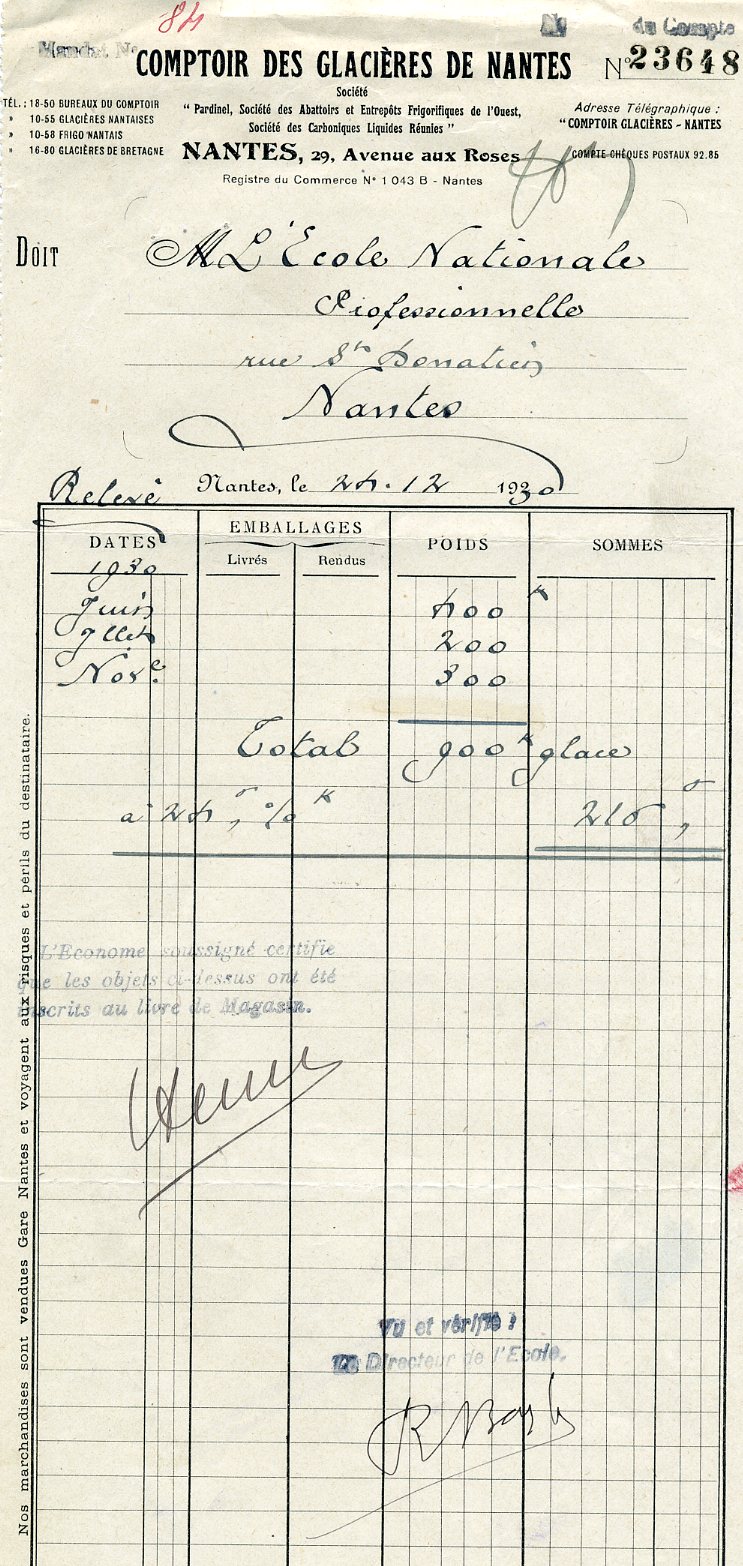 84
Mandat No
du Compte
COMPTOIR DES GLACIÈRES DE NANTES
No 23648
Société
TÉL. : 18-50 BUREAUX DU COMPTOIR
" 10-55 GLACIÈRES NANTAISES
" 10-58 FRIGO NANTAIS
" 16-80 GLACIÈRES DE BRETAGNE
" Pardinel, Société des Abattoirs et Entrepôts Frigorifiques de l'Ouest,
Société des Carboniques Liquides Réunies "
Adresse Télégraphique :
"COMPTOIR GLACIÈRES - NANTES
NANTES, 29, Avenue aux Roses
COMPTE CHÈQUES POSTAUX 92.85
Registre du Commerce N° 1 043 B - Nantes
DOIT
M L'École Nationale
Professionnelle
rue St Donatien
Nantes
Relevé
Nantes, le 24.12 1930
DATES
EMBALLAGES
POIDS
SOMMES
Livrés
Rendus
1930
Juin 400 K
Jllet 200
Nov e. 300
Total 900 K glace
à 24, % K 216,
L'Econome soussigné certifie
que les objets ci-dessus ont été
inscrits au livre de Magasin.
Vu et vérifié :
Directeur de l'Ecole.
Nos marchandises sont vendues Gare Nantes et voyagent aux risques et périls du destinataire.